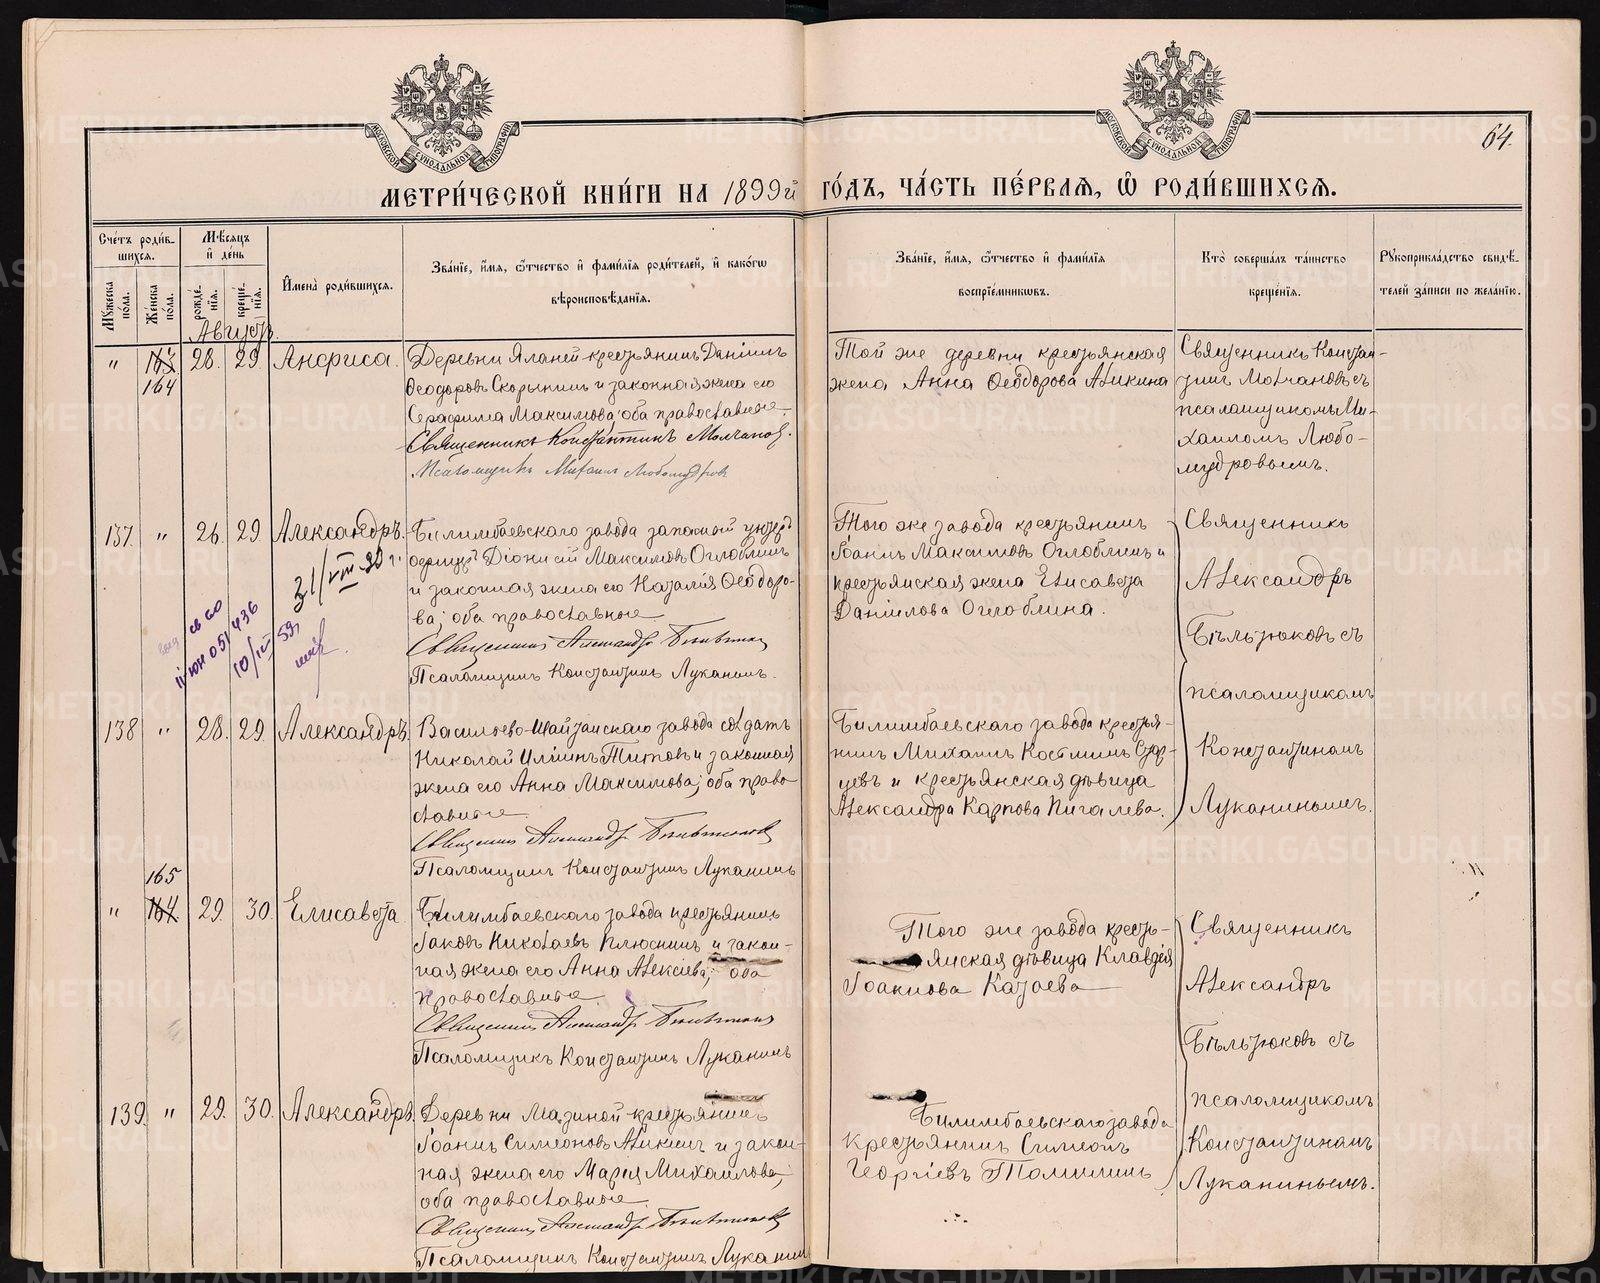 МЕТРИ́ЧЕСКОЙ КНИ́ГИ НА 1899й ГО́ДЪ, ЧА́СТЬ ПЕ́РВАЯ, Ѽ РОДИ́ВШИХСЯ.
64.
МОСКОВСКОЙ СѴНОДАЛЬНОЙ ТИПОГРАФІИ
МОСКОВСКОЙ СѴНОДАЛЬНОЙ ТИПОГРАФІИ
Сче́тъ роди́вшихся.
Мꙋ́жеска по́ла.
Же́нска по́ла.
Мѣ́сяцъ и҆ де́нь
рожде́нїя.
креще́нїя.
И҆мена̀ роди́вшихся.
Зва́нїе, и҆́мя, ѻ҆́тчество и҆ фами́лїя роди́телей, и҆ како́гѡ вѣроисповѣ́данїя.
Зва́нїе, и҆́мя, ѻ҆́тчество и҆ фами́лїя воспрїе́мникѡвъ.
Кто̀ соверша́лъ та́инство креще́нїя.
Рꙋкоприкла́дство свидѣ́телей за́писи по жела́нїю.
Августъ.
" 163 164 28. 29 Анфиса.
Деревни Яланей крестьянинъ Данiилъ
Ѳеодоровъ Скорынинъ и законная жена его
Серафима Максимова, оба православные.
Священникъ Константинъ Молчановъ.
Псаломщикъ Михаилъ Любомудровъ
Той же деревни крестьянская
жена Анна Ѳеодорова Аликина
Священникъ Констан-
тинъ Молчановъ съ
псаломщикомъ Ми-
хаиломъ Любо-
мудровымъ.
137. " 26. 29 Александръ.
31/VIII-30 г.
св со
II юн 051436
10/III 59г
Билимбаевскаго завода запасной унтеръ
офицеръ Дiонисiй Максимовъ Оглоблинъ
и законная жена его Наталiя Ѳеодоро-
ва; оба православные
Священникъ Александръ Бѣльтюковъ
Псаломщикъ Константинъ Луканинъ.
Того же завода крестьянинъ
Іоаннъ Максимовъ Оглоблинъ и
крестьянская жена Елисавета
Данiилова Оглоблина.
Священникъ
Александръ
Бѣльтюковъ съ
псаломщикомъ
Константиномъ
Луканинымъ.
138 " 28. 29. Александръ.
Васильево-Шайтанскаго завода солдатъ
Николай Илiинъ Титовъ и законная
жена его Анна Максимова; оба право-
славные.
Священникъ Александръ Бѣльтюковъ
Псаломщикъ Константинъ Луканинъ
Билимбаевскаго завода крестья-
нинъ Михаилъ Косминъ Стар-
цевъ и крестьянская дѣвица
Александра Карпова Пигалева.
165
" 164 29. 30. Елисавета
Билимбаевскаго завода крестьянинъ
Іаковъ Николаевъ Плюснинъ и закон-
ная жена его Анна Алексiева; оба
православные.
Священникъ Александръ Бѣльтюковъ
Псаломщикъ Константинъ Луканинъ
Того же завода кресть-
янская дѣвица Клавдiя
Іоакимова Катаева
Священникъ
Александръ
Бѣльтюковъ съ
псаломщикомъ
Константиномъ
Луканинымъ.
139. " 29. 30. Александръ.
Деревни Мазиной крестьянинъ
Іоаннъ Симеоновъ Аликинъ и закон-
ная жена его Марiя Михаилова;
оба православные.
Священникъ Александръ Бѣльтюковъ
Псаломщикъ Константинъ Луканин
Билимбаевскаго завода
крестьянинъ Симеонъ
Георгiевъ Томилинъ
METRIKI.GASO-URAL.RU